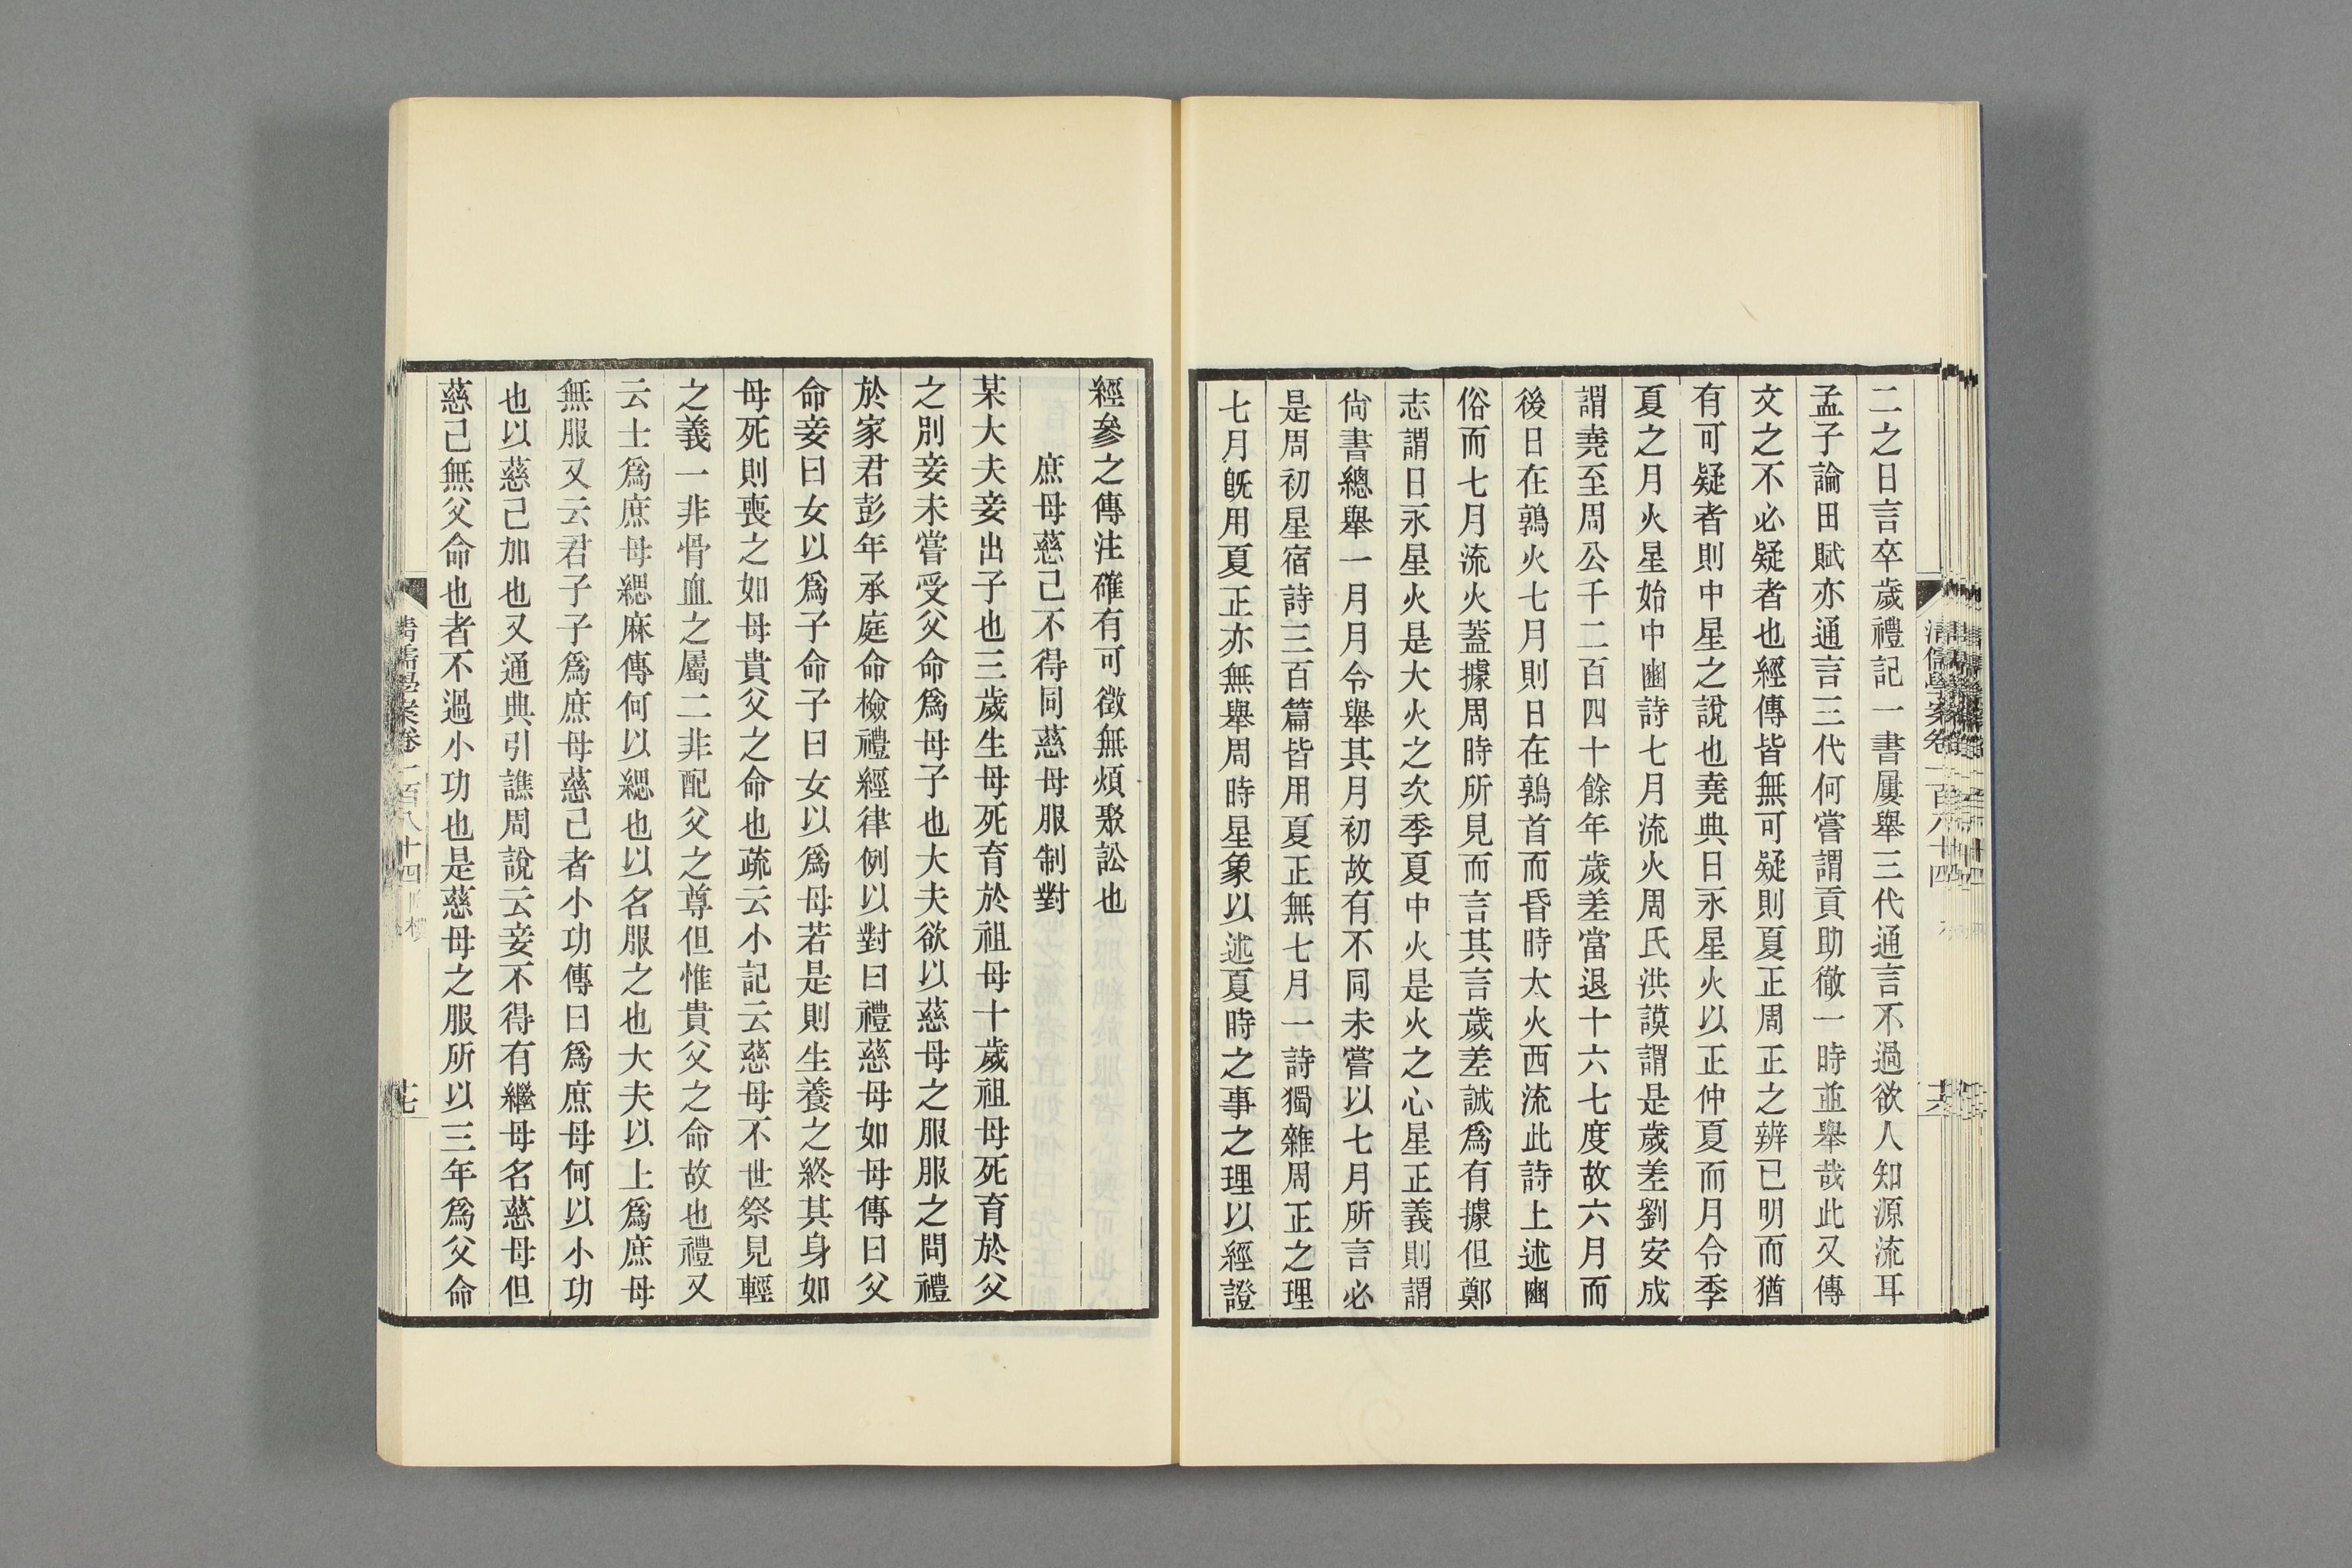 二之日言卒歲禮記一書屢舉三代通言不過欲人知源流耳
孟子論田賦亦通言三代何嘗謂貢助徹一時並舉哉此又傳
文之不必疑者也經傳皆無可疑則夏正周正之辨已明而猶
有可疑者則中星之說也堯典日永星火以正仲夏而月令季
夏之月火星始中豳詩七月流火周氏洪謨謂是歲差劉安成
謂堯至周公千二百四十餘年歲差當退十六七度故六月而
後日在鶉火七月則日在鶉首而昏時大火西流此詩上述豳
俗而七月流火蓋據周時所見而言其言歲差誠爲有據但鄭
志謂日永星火是大火之次季夏中火是火之心星正義則謂
尙書總舉一月月令舉其月初故有不同未嘗以七月所言必
是周初星宿詩三百篇皆用夏正無七月一詩獨雜周正之理
七月旣用夏正亦無舉周時星象以述夏時之事之理以經證
清儒學案卷一百八十四
六
經參之傳注確有可徵無煩聚訟也
庶母慈己不得同慈母服制對
某大夫妾出子也三歲生母死育於祖母十歲祖母死育於父
之別妾未嘗受父命爲母子也大夫欲以慈母之服服之問禮
於家君彭年承庭命檢禮經律例以對曰禮慈母如母傳曰父
命妾曰女以爲子命子曰女以爲母若是則生養之終其身如
母死則喪之如母貴父之命也疏云小記云慈母不世祭見輕
之義一非骨血之屬二非配父之尊但惟貴父之命故也禮又
云士爲庶母緦麻傳何以緦也以名服之也大夫以上爲庶母
無服又云君子子爲庶母慈己者小功傳曰爲庶母何以小功
也以慈己加也又通典引譙周說云妾不得有繼母名慈母但
慈己無父命也者不過小功也是慈母之服所以三年爲父命
清儒學案卷一百八十四
七